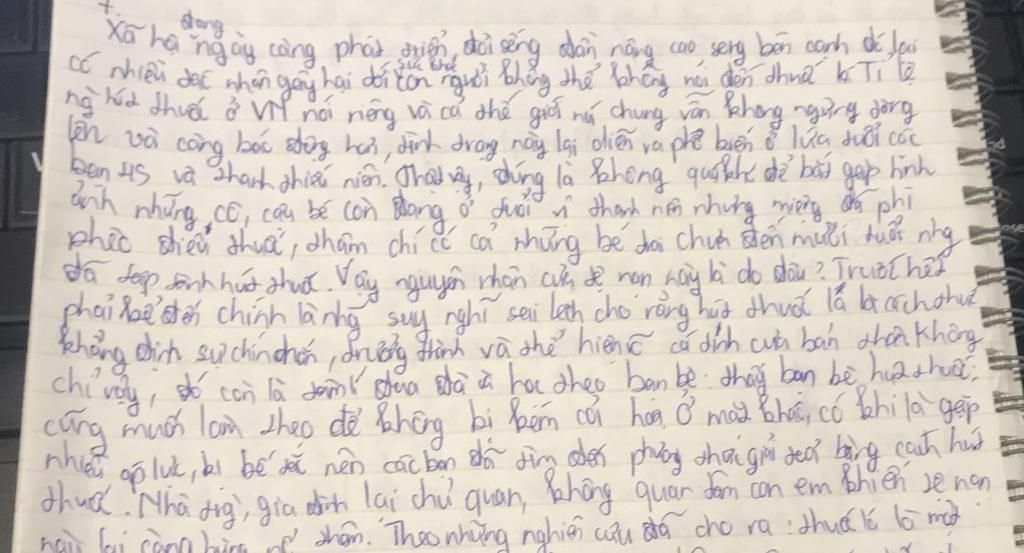 đang
Xã hội ngày càng phát triển, đời sống dần nâng cao song bên cạnh đó lại
sức khỏe
có nhiều tác nhân gây hại đối con người không thể không nói đến thuốc lá. Tỉ lệ
ng hút thuốc ở VN nói riêng và cả thế giới nói chung vẫn không ngừng tăng
lên và càng báo động hơn, tình trạng này lại diễn ra phổ biến ở lứa tuổi các
bạn HS và thanh thiếu niên. Thật vậy, đúng là không quá khó để bắt gặp hình
ảnh những cô, cậu bé còn đang ở tuổi vị thành niên nhưng miệng đã phì
phèo điếu thuốc, thậm chí có cả những bé trai chưa đến mười tuổi nhg
đã tập tành hút thuốc. Vậy nguyên nhân của tệ nạn này là do đâu? Trước hết
phải kể đến chính là nhg suy nghĩ sai lệch cho rằng hút thuốc lá là cách thức
khẳng định sự chín chắn, trưởng thành và thể hiện cá tính của bản thân. Không
chỉ vậy, đó còn là tâm lí đua đòi và học theo bạn bè. thấy bạn bè hút thuốc,
cũng muốn làm theo để không bị kém cỏi hơn. Ở mặt khác, có khi là gặp
nhiều áp lực, bị bế tắc nên các bạn đã tìm đến phương thức giải tỏa bằng cách hút
thuốc. Nhà trg, gia đình lại chủ quan, không quan tâm con em khiến tệ nạn
này lại càng Theo những nghiên cứu đã cho ra: thuốc lá là một